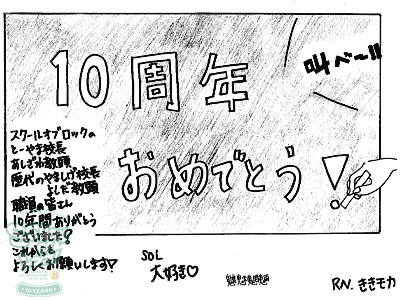 10周年
おめでとう!
叫べ〜!!
スクールオブロックの
とーやま校長
あしざわ教頭
歴代のやましげ校長
よしだ教頭
職員の皆さん
10年間ありがとう
ございました!
これからも
よろしくお願いします♡
SOL
大好き♡
RN.ききモカ
10 YEARS